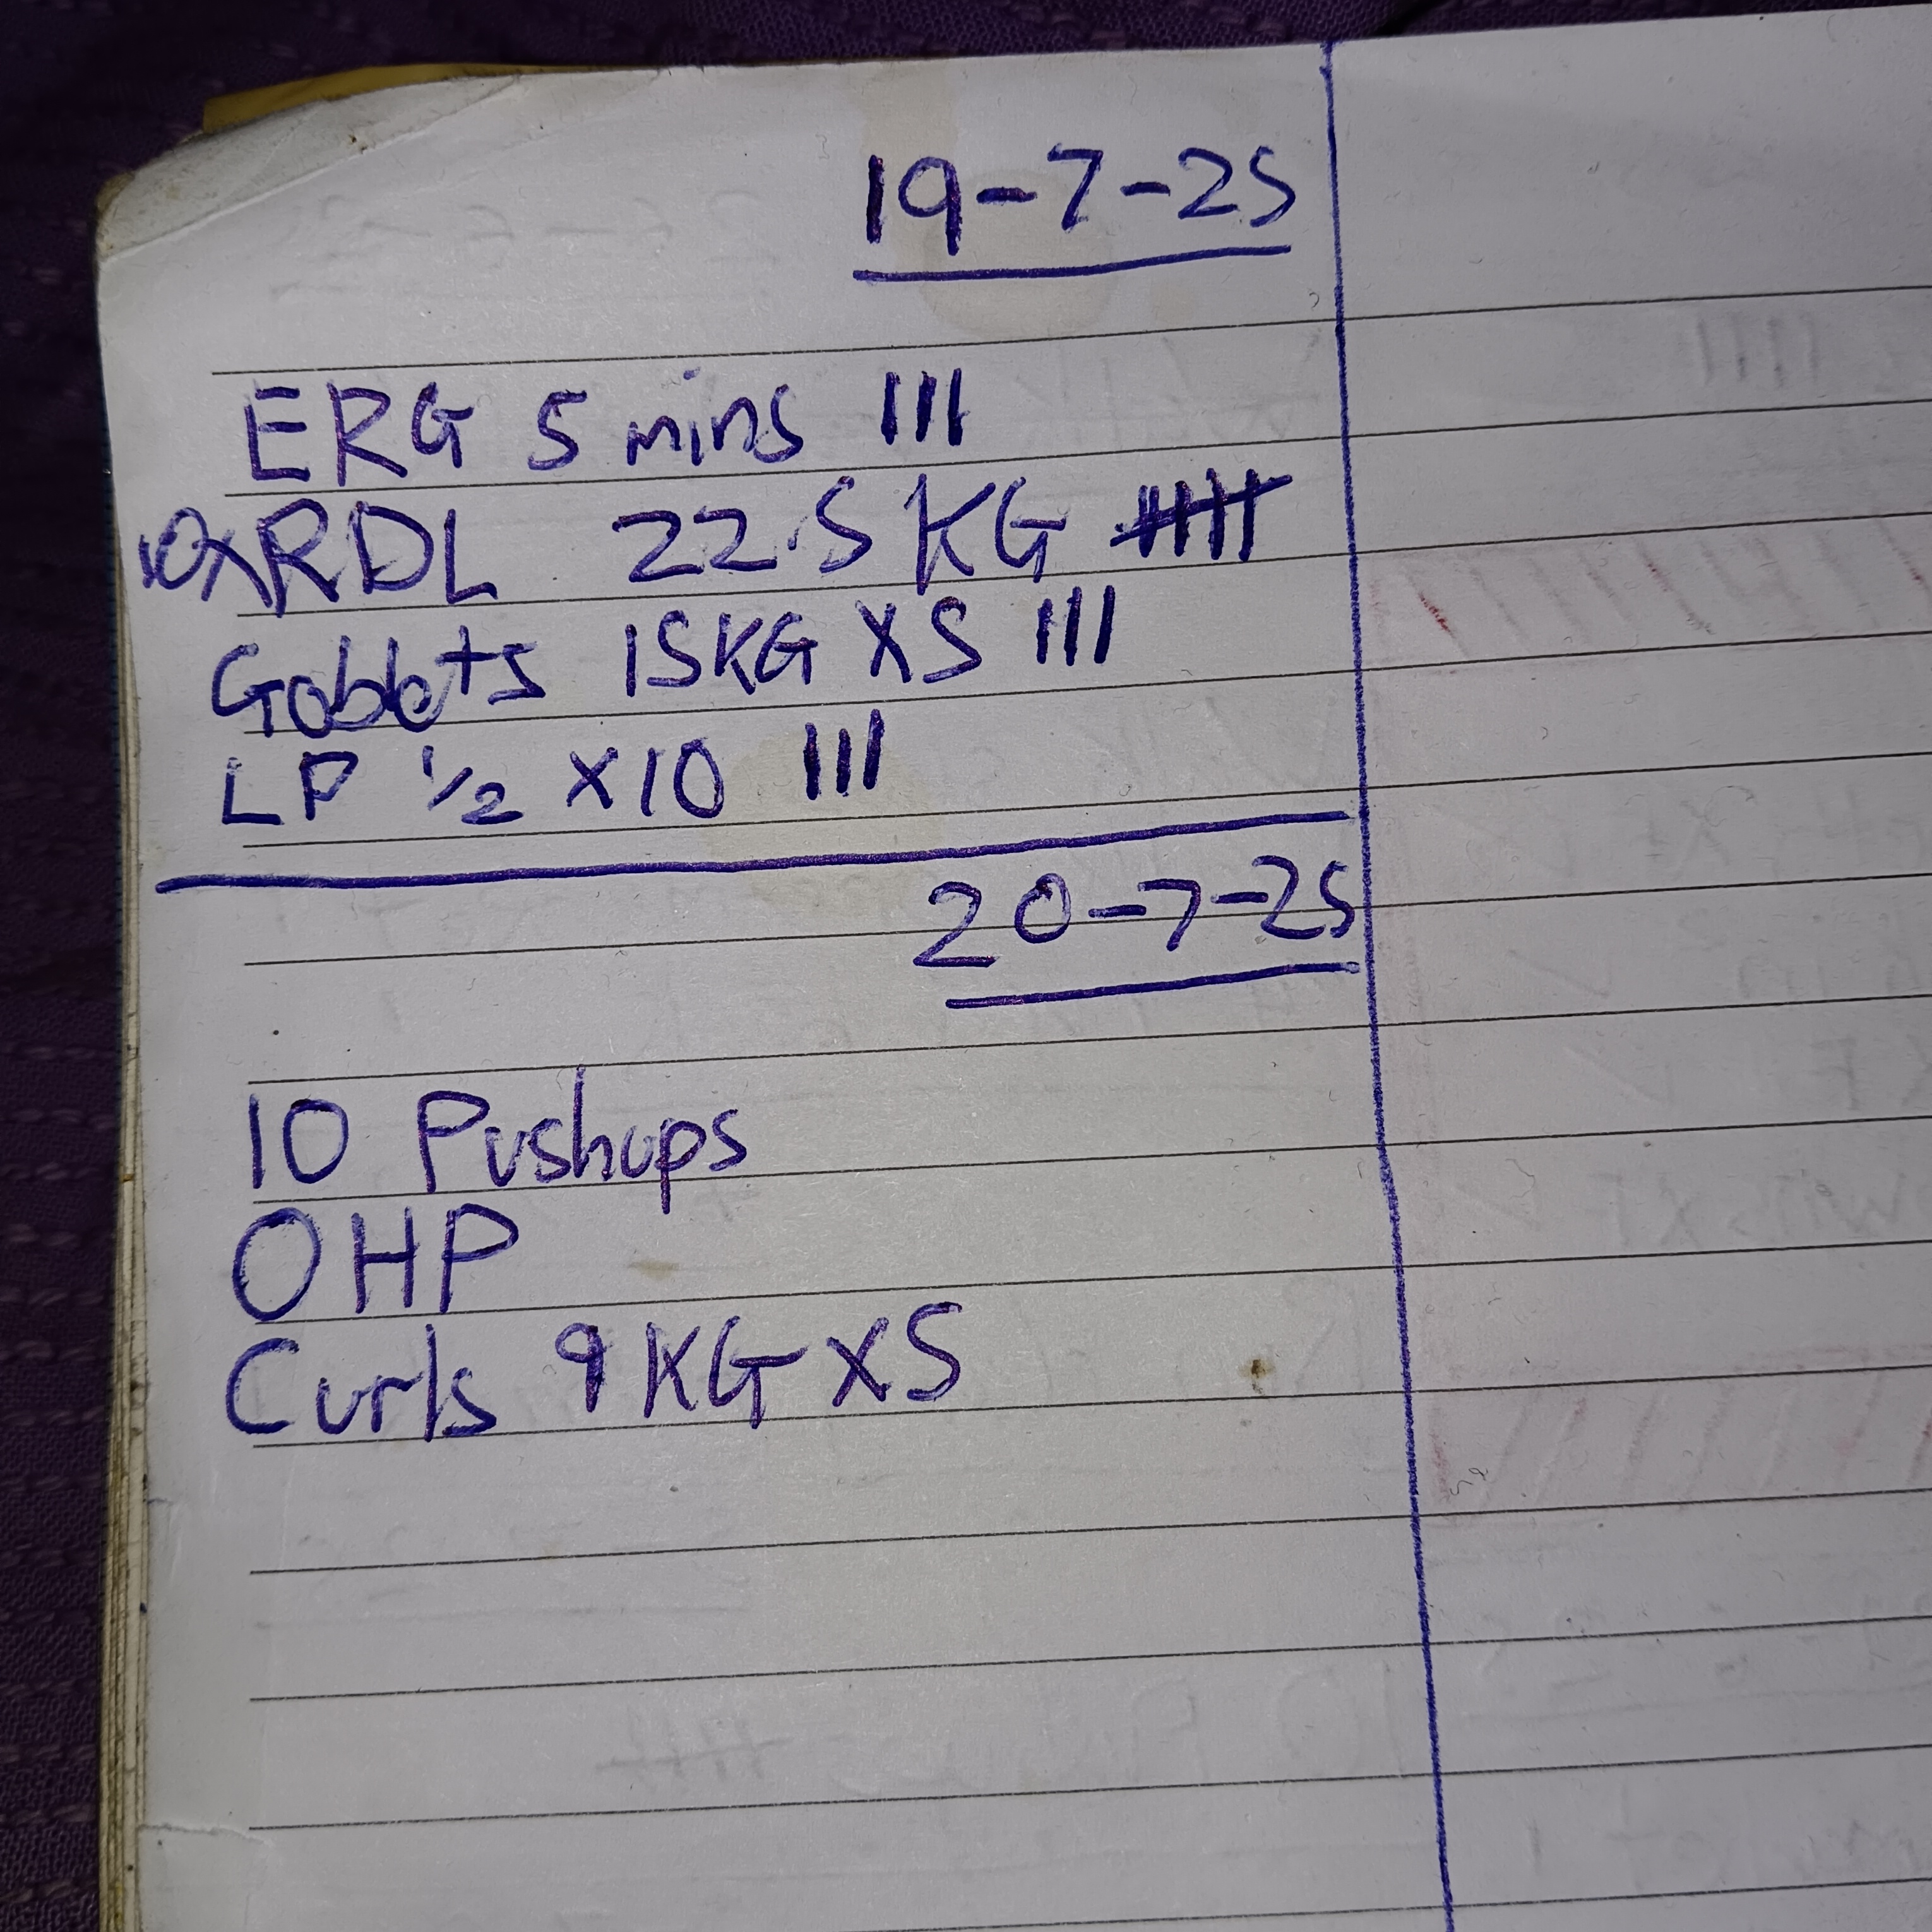 19-7-25
ERG 5 mins |||
10x RDL 22.5 KG 卌
Goblets 15KG X5 |||
LP 1/2 X10 |||
20-7-25
10 Pushups
OHP
Curls 9KG X5